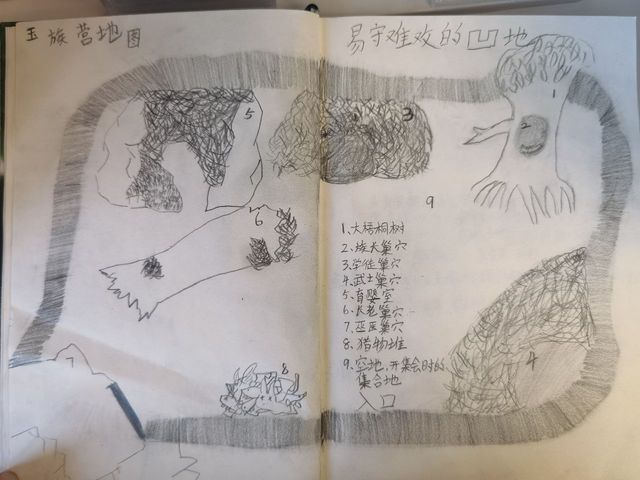 玉族营地图
易守难攻的凹地
1
2
3
5
6
9
1、大梧桐树
2、族长巢穴
3、学徒巢穴
4、武士巢穴
5、育婴室
6、长老巢穴
7、巫医巢穴
8、猎物堆
9、空地,开集会时的
集合地
入口
4
8